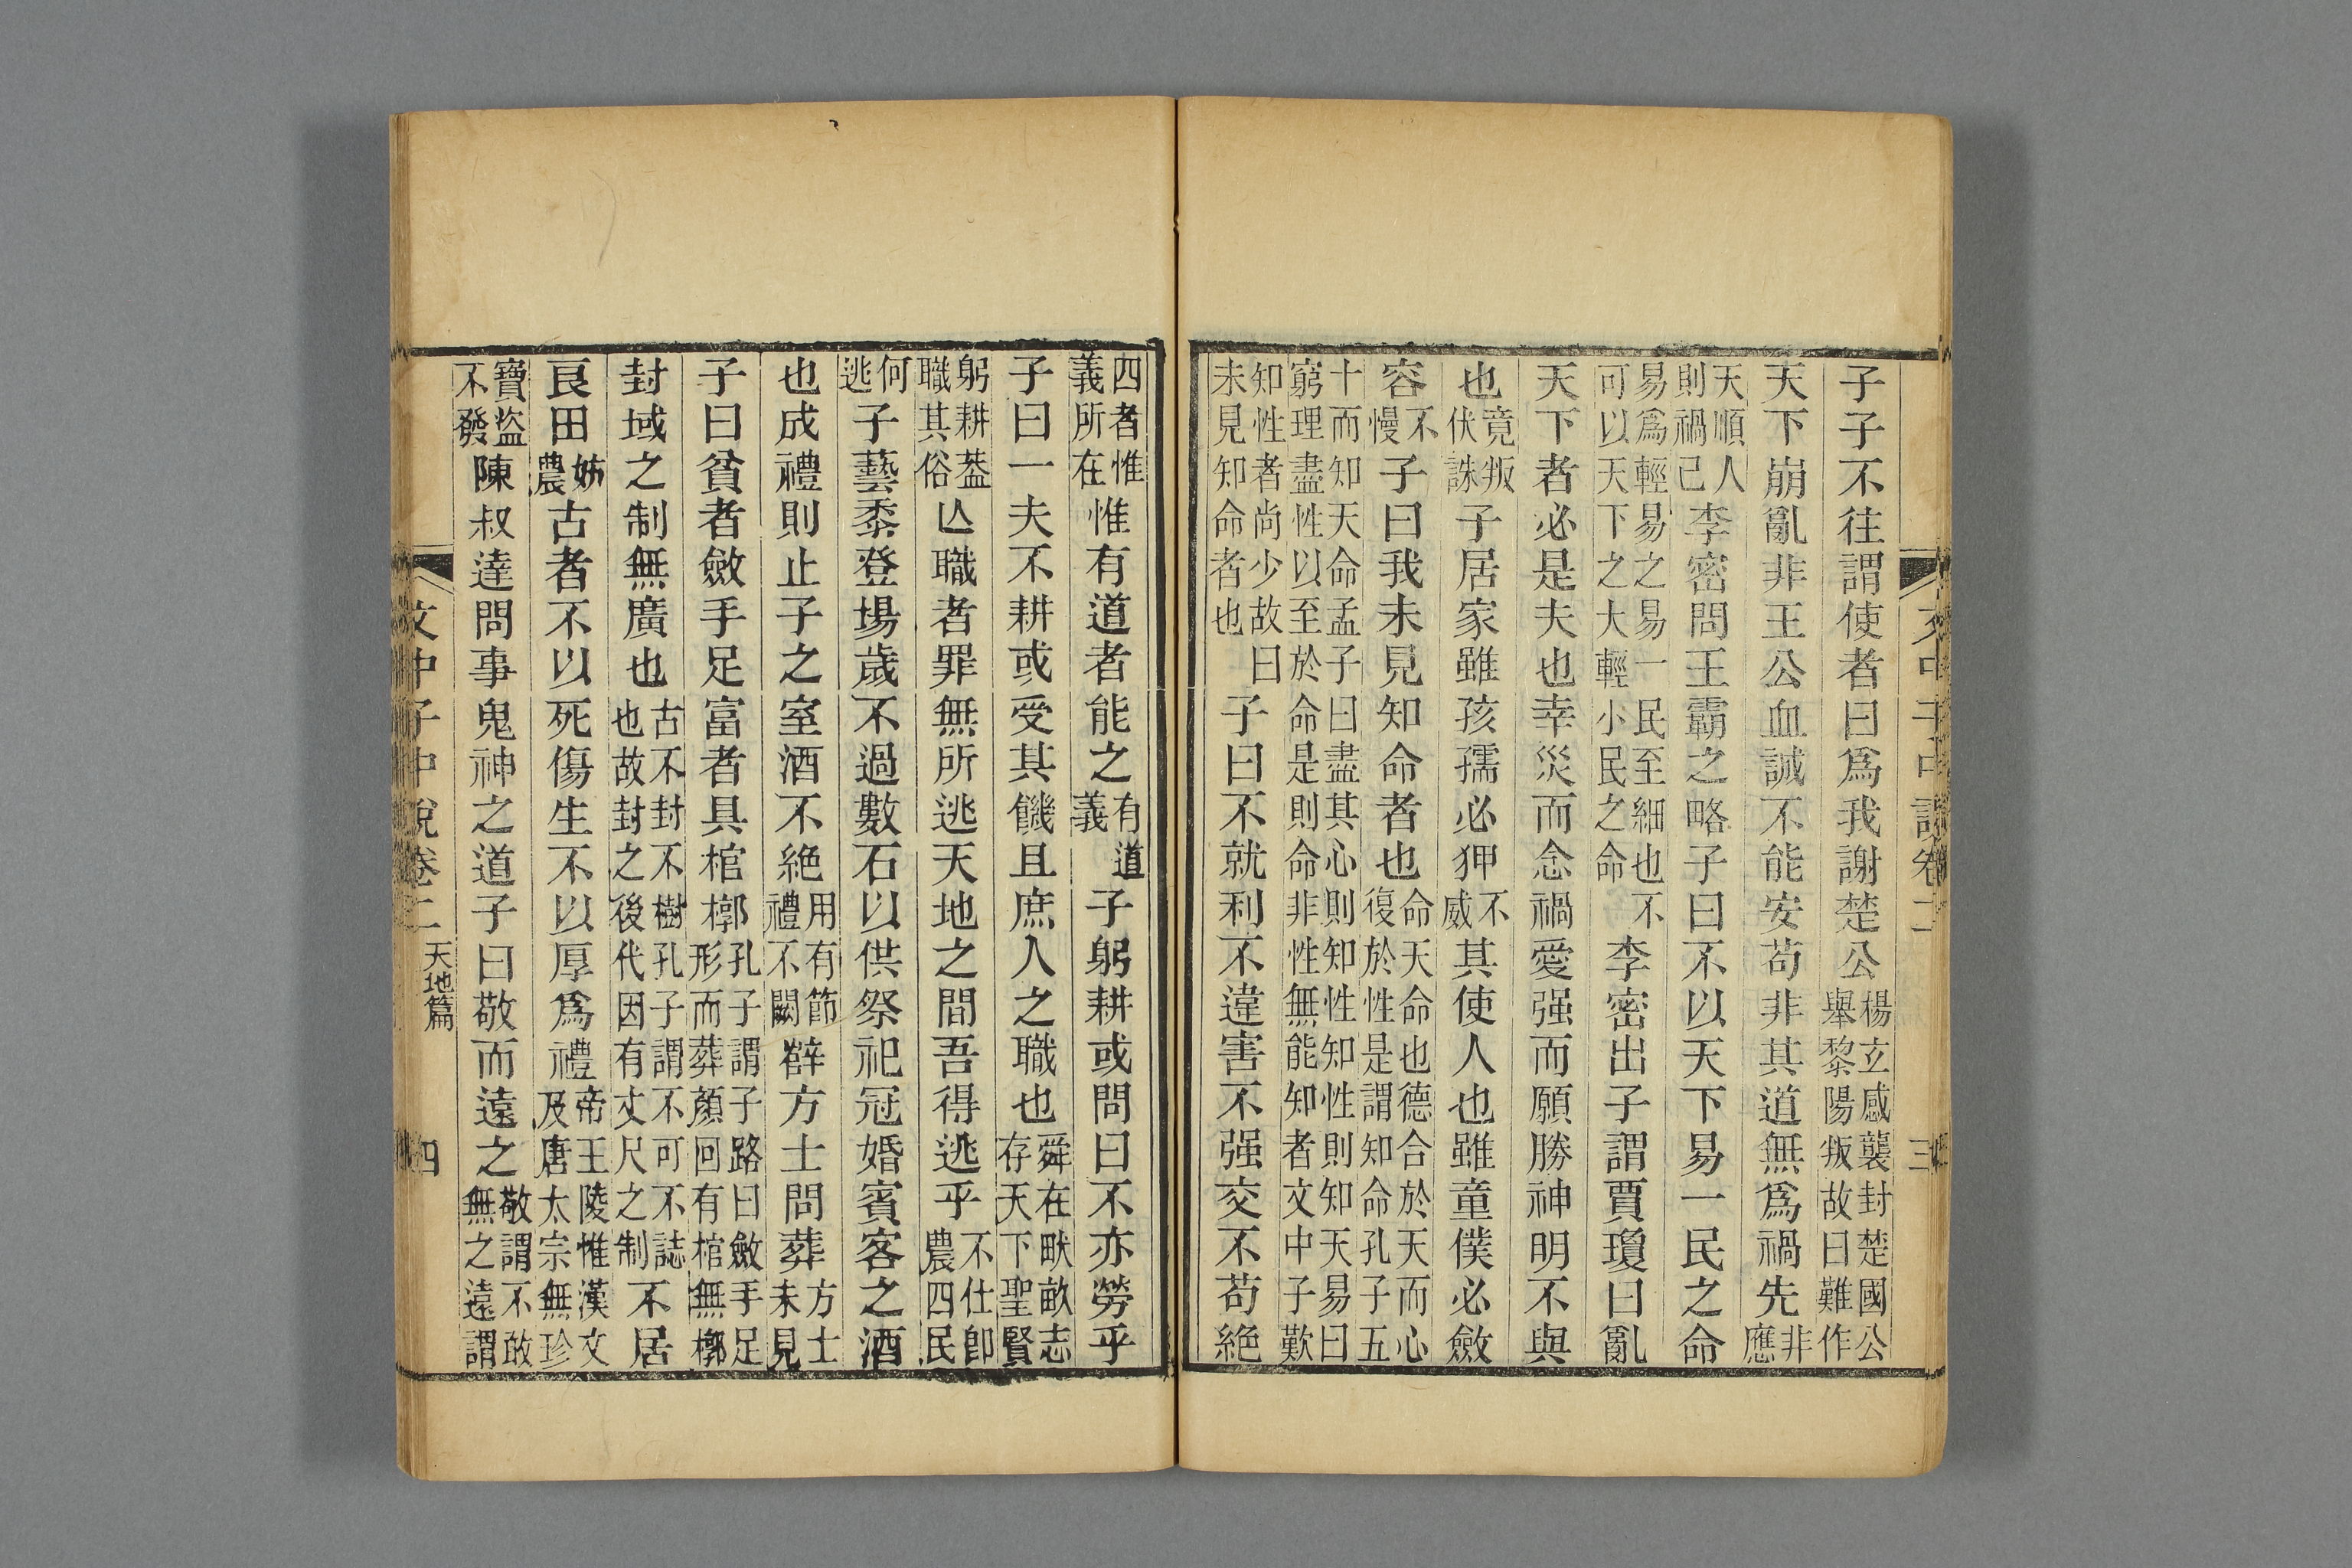 文中子中說卷二　三
子子不往謂使者曰爲我謝楚公楊玄感襲封楚國公舉黎陽叛故曰難作
天下崩亂非王公血誠不能安苟非其道無爲禍先非應
天順人則禍已李密問王霸之略子曰不以天下易一民之命
易爲輕易之易一民至細也不可以天下之大輕小民之命李密出子謂賈瓊曰亂
天下者必是夫也幸災而念禍愛强而願勝神明不與
也竟叛伏誅子居家雖孩孺必狎不威其使人也雖童僕必斂
容不慢子曰我未見知命者也命天命也德合於天而心復於性是謂知命孔子五
十而知天命孟子曰盡其心則知性知性則知天易曰窮理盡性以至於命是則命非性無能知者文中子歎
知性者尚少故曰未見知命者也子曰不就利不違害不强交不苟絕
四者惟義所在惟有道者能之有道義子躬耕或問曰不亦勞乎
子曰一夫不耕或受其饑且庶人之職也舜在畎畝志存天下聖賢
躬耕葢職其俗亾職者罪無所逃天地之間吾得逃乎不仕卽農四民
何逃子藝黍登場歲不過數石以供祭祀冠婚賓客之酒
也成禮則止子之室酒不絕用有節禮不闕辥方士問葬方士未見
子曰貧者斂手足富者具棺槨孔子謂子路曰斂手足形而葬顏回有棺無槨
封域之制無廣也古不封不樹孔子謂不可不誌也故封之後代因有丈尺之制不居
良田妨農古者不以死傷生不以厚爲禮帝王陵惟漢文及唐太宗無珍
寶盜不發陳叔達問事鬼神之道子曰敬而遠之敬謂不敢無之遠謂
文中子中說卷二　天地篇　四